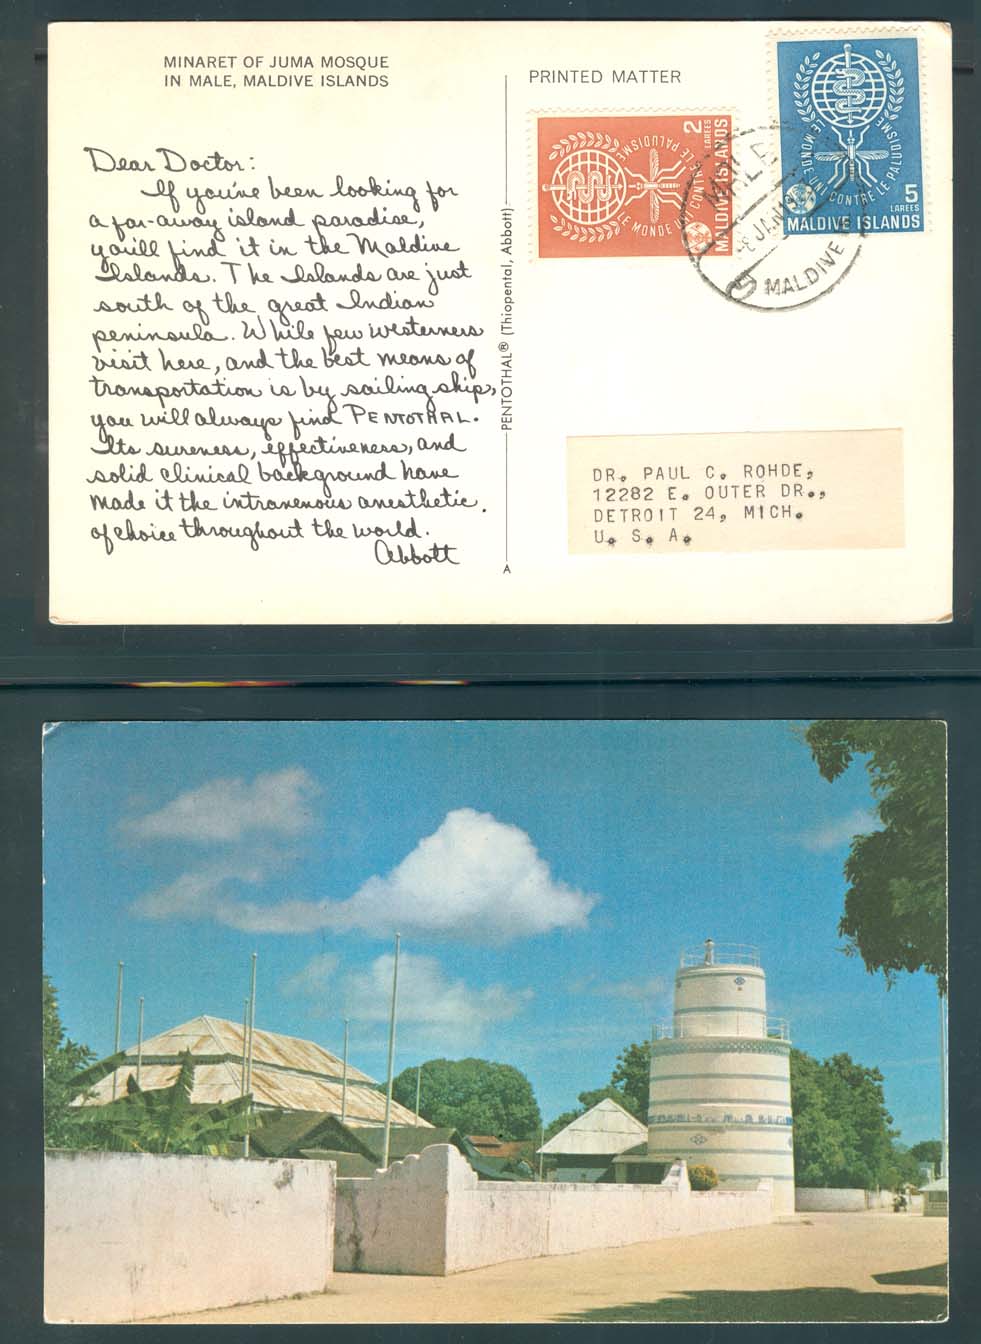 MINARET OF JUMA MOSQUE
IN MALE, MALDIVE ISLANDS
Dear Doctor:
If you've been looking for
a far-away island paradise,
you'll find it in the Maldive
Islands. The Islands are just
south of the great Indian
peninsula. While few westerners
visit here, and the best means of
transportation is by sailing ship,
you will always find PENTOTHAL.
Its sureness, effectiveness, and
solid clinical background have
made it the intravenous anesthetic
of choice throughout the world.
Abbott
PENTOTHAL® (Thiopental, Abbott)
A
PRINTED MATTER
2
LAREES
MALDIVE ISLANDS
LE MONDE UNI CONTRE LE PALUDISME
5
LAREES
MALDIVE ISLANDS
LE MONDE UNI CONTRE LE PALUDISME
MALE
8 JAN
MALDIVE
DR. PAUL C. ROHDE,
12282 E. OUTER DR.,
DETROIT 24, MICH.
U. S. A.